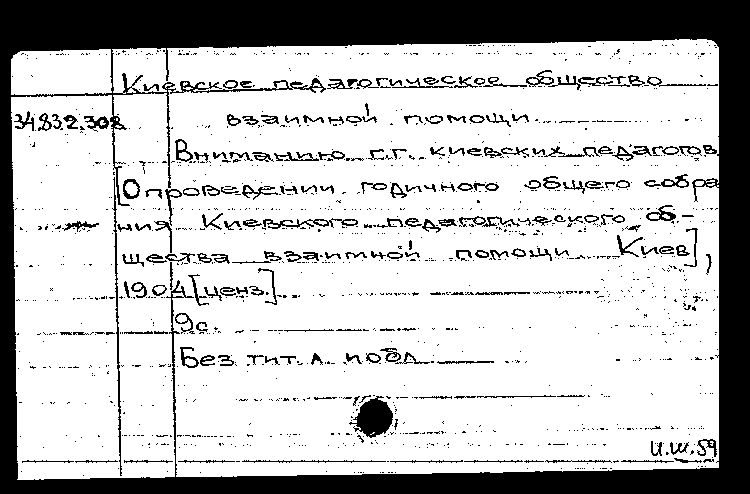 Киевское педагогическое общество
34.832.308 взаимной помощи.
Вниманию г.г. киевских педагогов
[О проведении годичного общего собра
ния Киевского педагогического об-
щества взаимной помощи. Киев],
1904 [ценз.].
9с.
Без тит. л. и обл
И.Ш.59